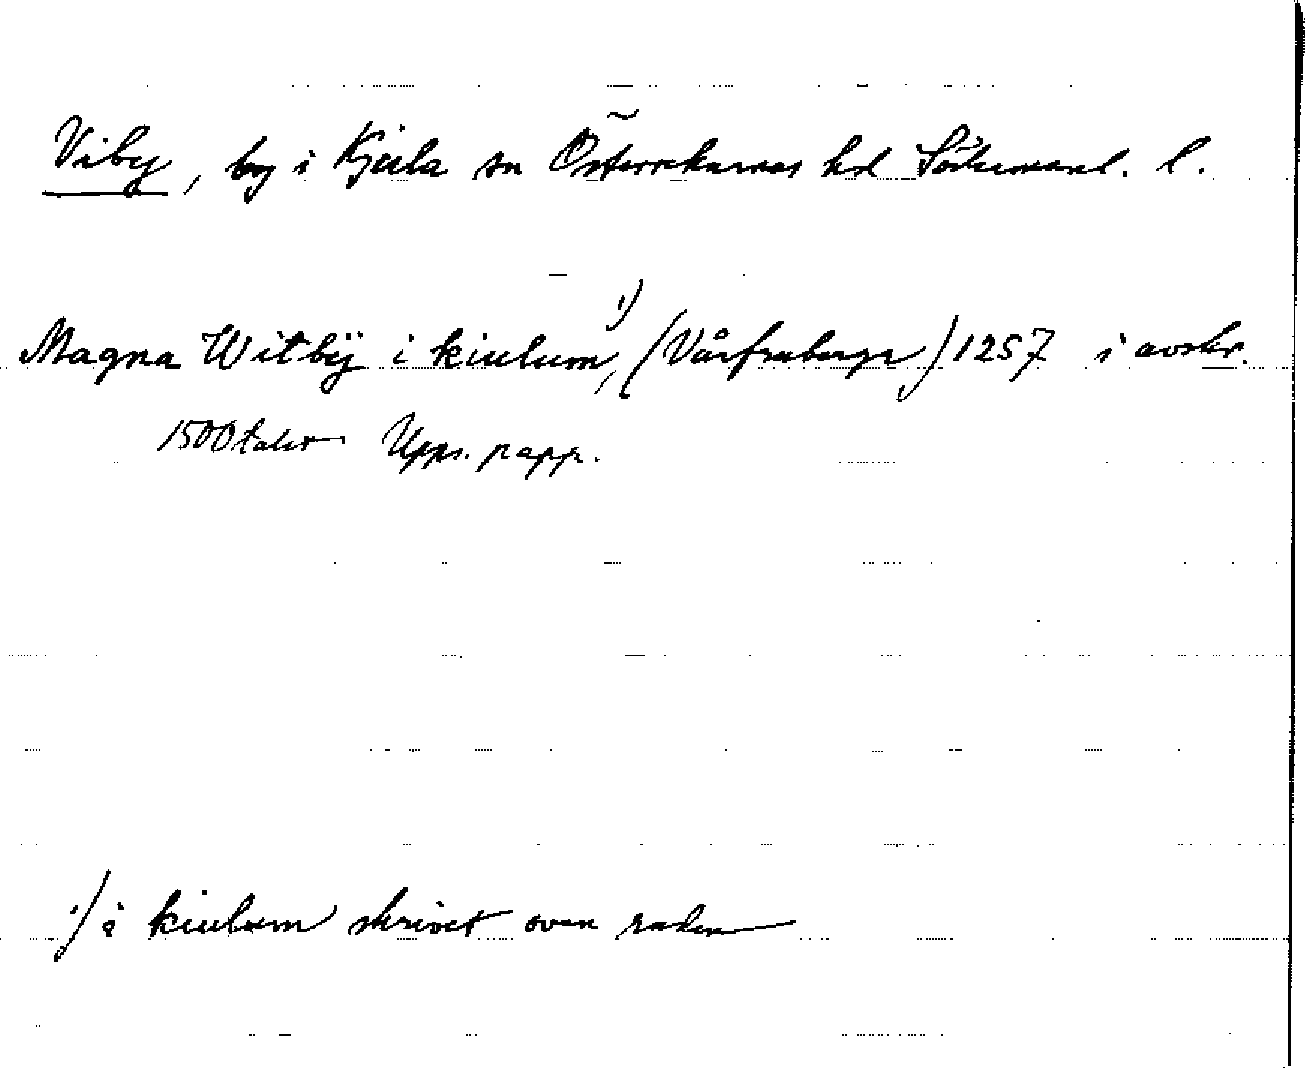 Viby, by i Kjula sn Österrekarnes hd Södermanl. l.
Magna Witbÿ i kiulum,¹⁾ (Vårfruberga) 1257 i avskr.
1500talet Upps. papp.
¹⁾ i kiulum skrivet ovan raden